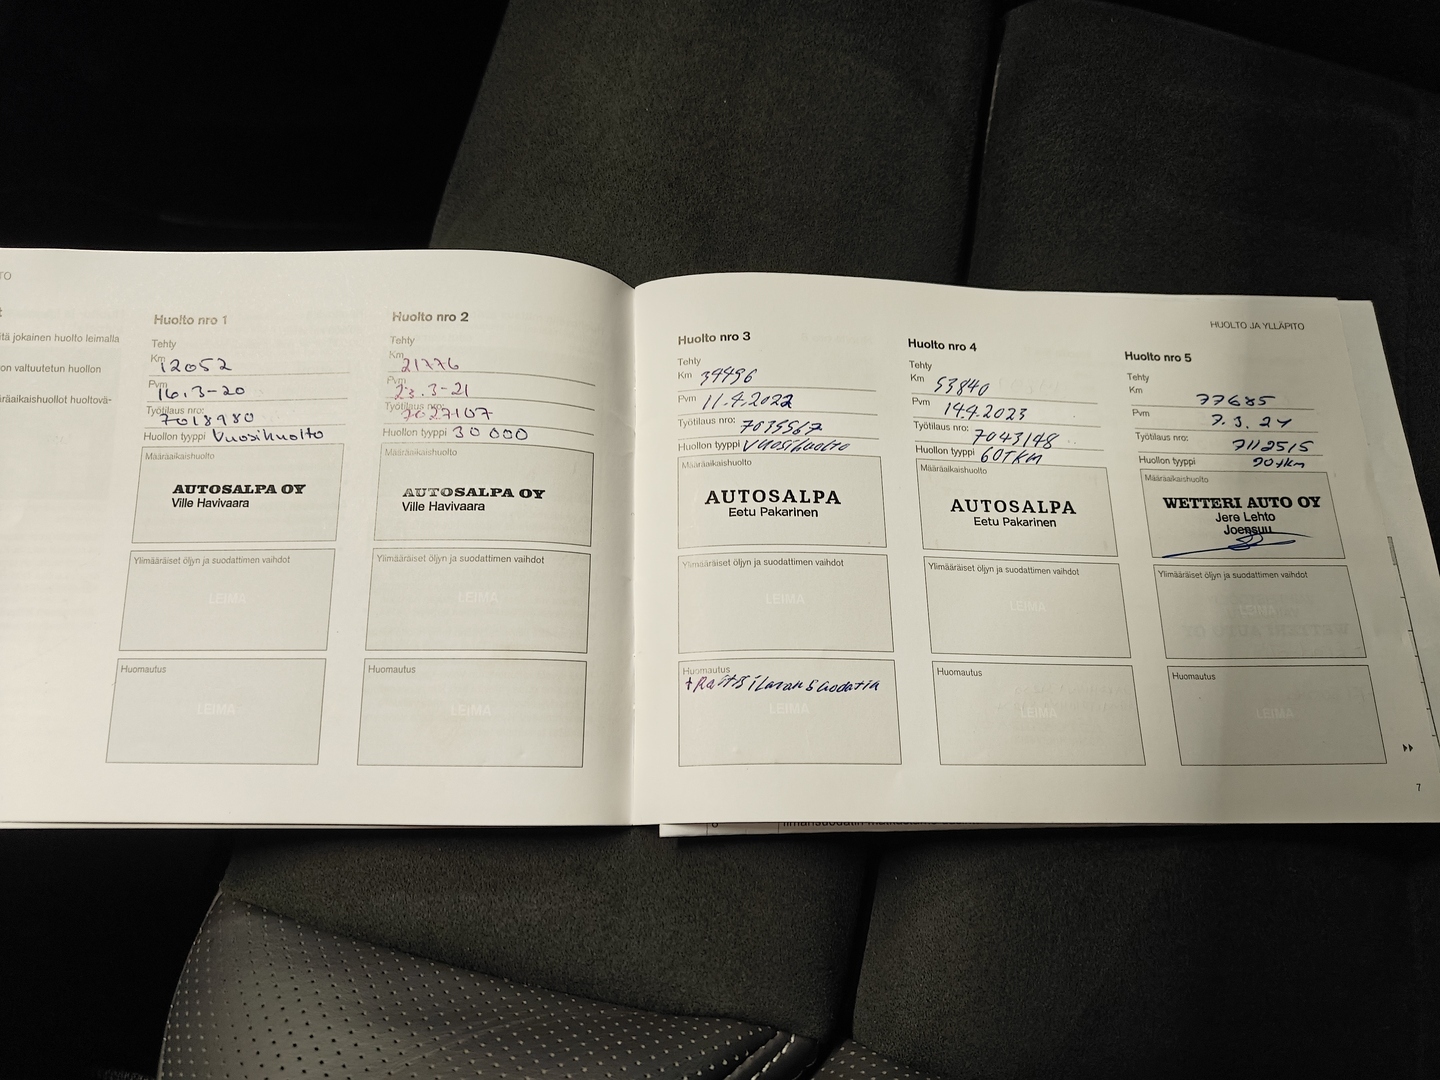 TO
itä jokainen huolto leimalla
on valtuutetun huollon
äräaikaishuollot huoltovä-
Huolto nro 1
Tehty
Km 12052
Pvm 16.3-20
Työtilaus nro: 7018980
Huollon tyyppi Vuosihuolto
Määräaikaishuolto
AUTOSALPA OY
Ville Havivaara
Ylimääräiset öljyn ja suodattimen vaihdot
LEIMA
Huomautus
LEIMA
Huolto nro 2
Tehty
Km 21776
Pvm 23.3-21
Työtilaus nro: 7027107
Huollon tyyppi 30 000
Määräaikaishuolto
AUTOSALPA OY
Ville Havivaara
Ylimääräiset öljyn ja suodattimen vaihdot
LEIMA
Huomautus
LEIMA
HUOLTO JA YLLÄPITO
Huolto nro 3
Tehty
Km 39496
Pvm 11.4.2022
Työtilaus nro: 7035567
Huollon tyyppi Vuosihuolto
Määräaikaishuolto
AUTOSALPA
Eetu Pakarinen
Ylimääräiset öljyn ja suodattimen vaihdot
LEIMA
Huomautus
+Raitisilman Suodatin
LEIMA
Huolto nro 4
Tehty
Km 53840
Pvm 14.4.2023
Työtilaus nro: 7043148
Huollon tyyppi 60TKM
Määräaikaishuolto
AUTOSALPA
Eetu Pakarinen
Ylimääräiset öljyn ja suodattimen vaihdot
LEIMA
Huomautus
LEIMA
Huolto nro 5
Tehty
Km 77685
Pvm 7.3.24
Työtilaus nro: 7112515
Huollon tyyppi 90tkm
Määräaikaishuolto
WETTERI AUTO OY
Jere Lehto
Joensuu
Ylimääräiset öljyn ja suodattimen vaihdot
LEIMA
Huomautus
LEIMA
7